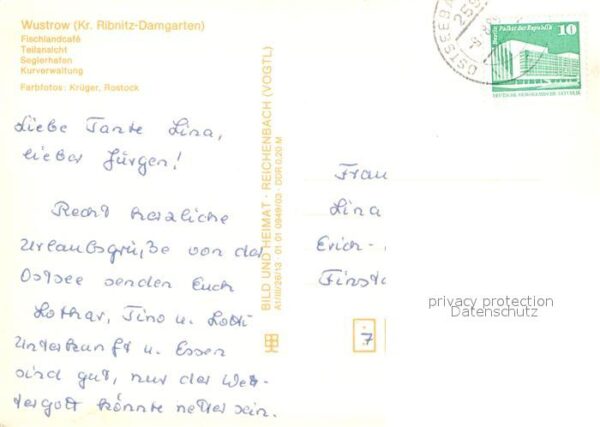 Wustrow (Kr. Ribnitz-Damgarten)
Fischlandcafé
Teilansicht
Seglerhafen
Kurverwaltung
Farbfotos: Krüger, Rostock
Liebe Tante Lina,
lieber Jürgen!
Recht herzliche
Urlaubsgrüße von der
Ostsee senden Euch
Lothar, Tino u. Lotti
Unterkunft u. Essen
sind gut, nur der Wet-
tergott könnte netter sein.
BILD UND HEIMAT · REICHENBACH (VOGTL)
A1/III/26/13 01 01 0949/03 · DDR 0,20 M
OSTSEEBA
259
Berlin Palast der Republik
10
Frau
Lina
Erich-
Finste
7
privacy protection
Datenschutz